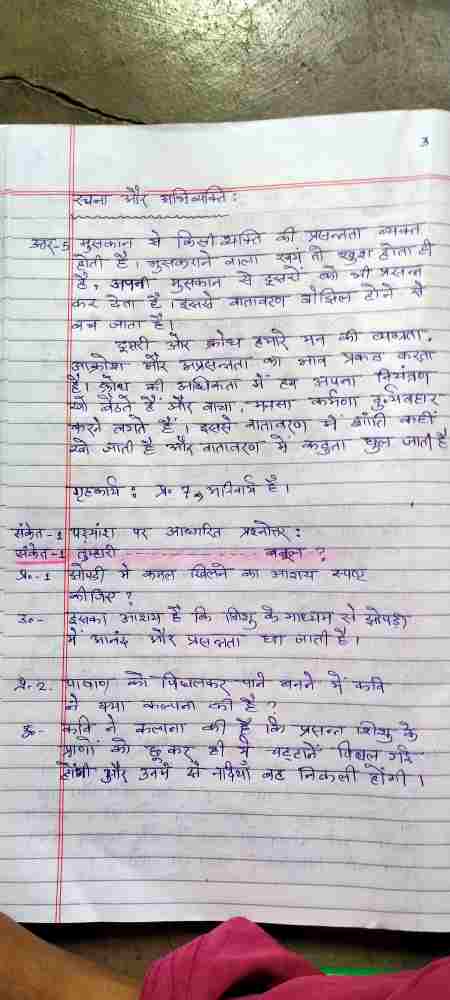 3
रचना और अभिव्यक्ति :
उत्तर-5 मुसकान से किसी व्यक्ति की प्रसन्नता व्यक्त
होती है। मुसकराने वाला स्वयं तो खुश होता ही
है, अपनी मुसकान से दूसरों को भी प्रसन्न
कर देता है। इससे वातावरण बोझिल होने से
बच जाता है।
दूसरी और क्रोध हमारे मन की व्यग्रता,
आक्रोश और अप्रसन्नता का भाव प्रकट करता
है। क्रोध की अधिकता में हम अपना नियंत्रण
खो बैठते हैं और वाचा, मनसा कर्मणा दुर्व्यवहार
करने लगते हैं। इससे वातावरण में शांति कहीं
खो जाती है और वातावरण में कटुता घुल जाती है
गृहकार्य : प्र. 7 अनिवार्य है।
संकेत-1 पद्यांश पर आधारित प्रश्नोत्तर :
संकेत-1 तुम्हारी ........................ बबूल ?
प्र.-1 झोंपड़ी में कमल खिलने का आशय स्पष्ट
कीजिए ?
उ.- इसका आशय है कि शिशु के माध्यम से झोंपड़ी
में आनंद और प्रसन्नता छा जाती है।
प्र.-2. पाषाण को पिघलकर पानी बनने में कवि
ने क्या कल्पना की है ?
उ.- कवि ने कल्पना की है कि प्रसन्न शिशु के
प्राणों को छूकर ही ये चट्टानें पिघल गई
होंगी और उनमें से नदियाँ बह निकली होंगी।